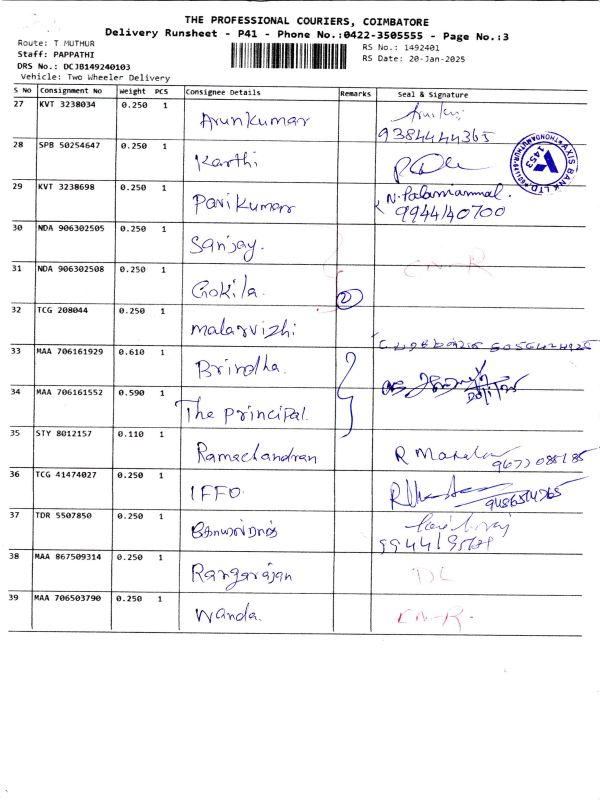 THE PROFESSIONAL COURIERS, COIMBATORE
Delivery Runsheet - P41 - Phone No.:0422-3505555 - Page No.:3
Route: T MUTHUR
RS No.: 1492401
Staff: PAPPATHI
RS Date: 20-Jan-2025
DRS No.: DCJB149240103
Vehicle: Two Wheeler Delivery
S No Consignment No Weight PCS Consignee Details Remarks Seal & Signature
27 KVT 3238034 0.250 1 Arunkumar
9384444365
28 SPB 50254647 0.250 1 Karthi
AXIS BANK LTD.
1453
29 KVT 3238698 0.250 1 Parikumar N. Palaniammal.
9944140700
30 NDA 906302505 0.250 1 Sanjay.
31 NDA 906302508 0.250 1 Gokila.
2
32 TCG 208044 0.250 1 Malarvizhi
33 MAA 706161929 0.610 1 Brindha.
34 MAA 706161552 0.590 1 The principal.
35 STY 8012157 0.110 1 Ramachandran
36 TCG 41474027 0.250 1 IFFO
37 TDR 5507850 0.250 1
38 MAA 867509314 0.250 1 Rangarajan DL
39 MAA 706503790 0.250 1 Wanda.